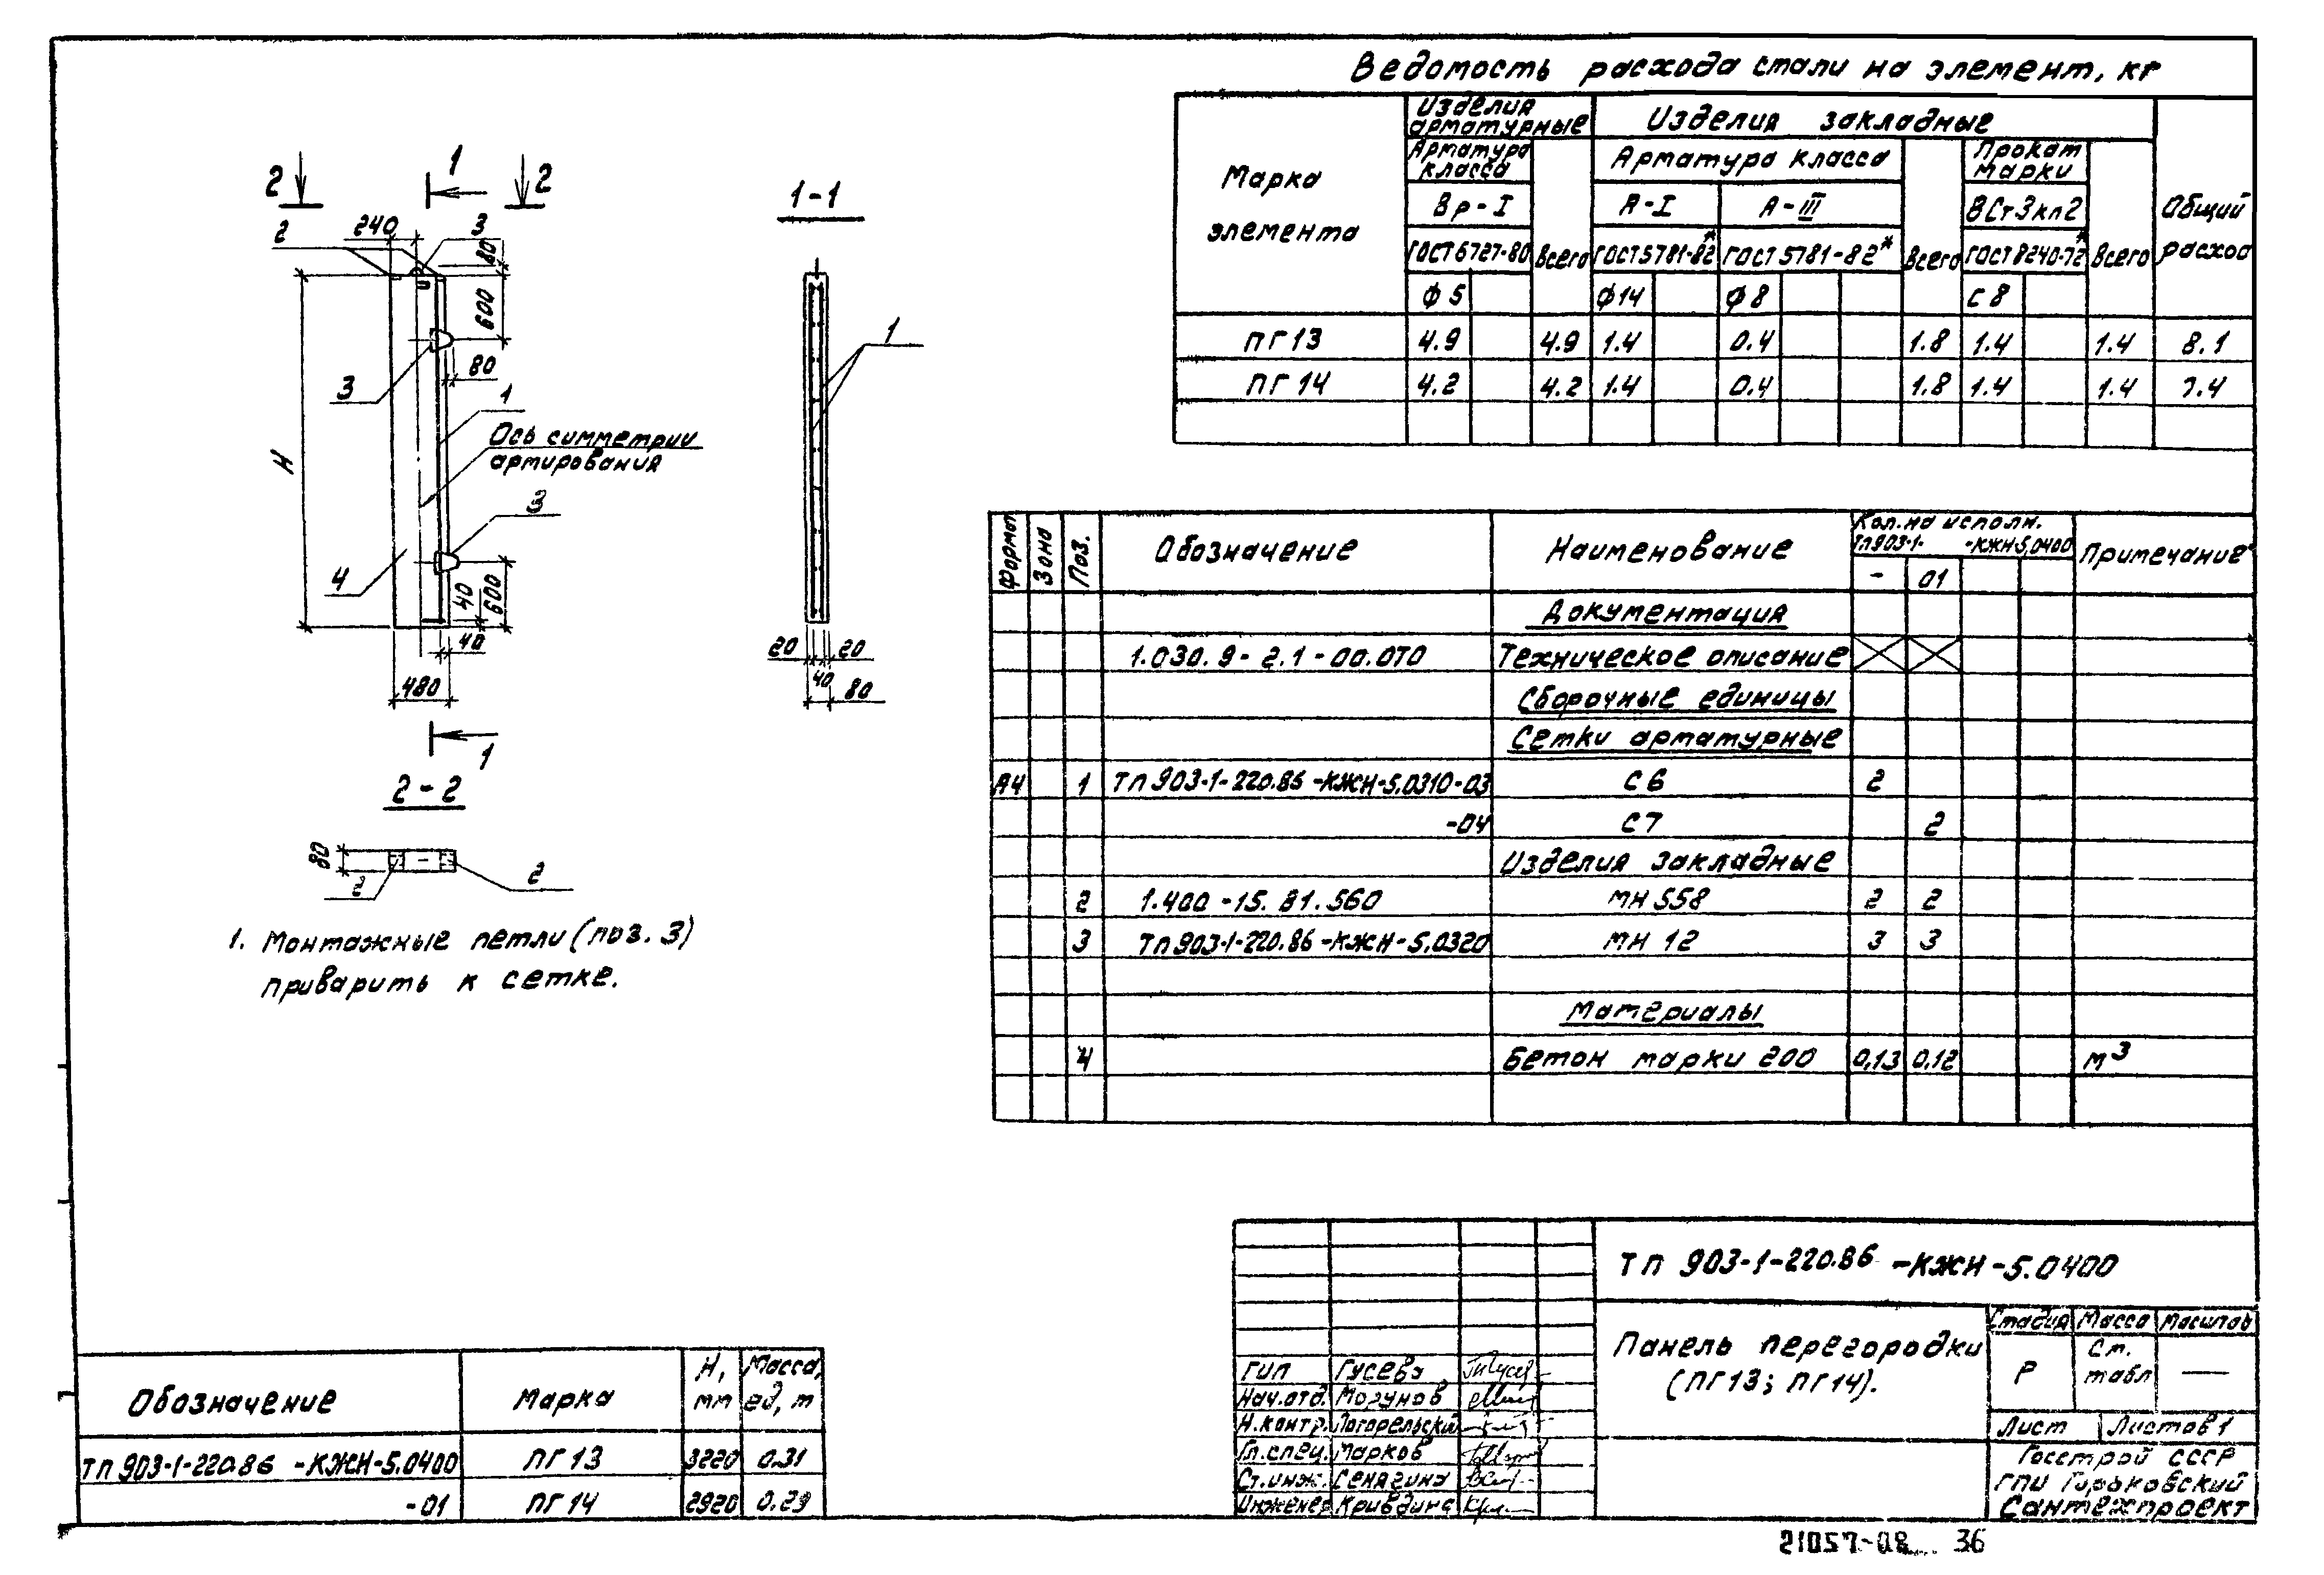 Ведомость расхода стали на элемент, кг
Марка элемента
Изделия арматурные
Изделия закладные
Общий расход
Арматура класса
Всего
Арматура класса
Всего
Прокат марки
Всего
Вр-I
А-I
А-III
ВСт3кп2
ГОСТ 6727-80
ГОСТ 5781-82*
ГОСТ 5781-82*
ГОСТ 8240-72*
ф5
ф14
ф8
С8
ПГ13 4.9 4.9 1.4 0.4 1.8 1.4 1.4 8.1
ПГ14 4.2 4.2 1.4 0.4 1.8 1.4 1.4 7.4
2
1
2
240
2
3
80
600
80
3
1
Ось симметрии
армирования
H
3
4
40
600
40
480
1
1-1
1
20
20
40
80
2-2
80
2
2
1. Монтажные петли (поз. 3)
приварить к сетке.
Формат
Зона
Поз.
Обозначение
Наименование
Кол. на исполн.
ТП903-1- -КЖН-5.0400
Примечание
- 01
Документация
1.030.9-2.1-00.0ТО Техническое описание
Сборочные единицы
Сетки арматурные
А4 1 ТП 903-1-220.86 -КЖН-5.0310-03 С6 2
-04 С7 2
Изделия закладные
2 1.400-15.В1.560 МН 558 2 2
3 ТП903-1-220.86-КЖН-5.0320 МН 12 3 3
Материалы
4 Бетон марки 200 0,13 0,12 м3
Обозначение
Марка
Н, мм
Масса, ед, т
ТП 903-1-220.86 -КЖН-5.0400 ПГ13 3220 0.31
-01 ПГ14 2920 0.29
ТП 903-1-220.86 -КЖН-5.0400
Панель перегородки
(ПГ13; ПГ14).
Стадия Масса Масштаб
Р
См.
табл
—
Лист Листов 1
Госстрой СССР
ГПИ Горьковский
Сантехпроект
ГИП Гусева
Нач.отд. Могунов
Н.контр. Погорельский
Гл.спец. Марков
Ст.инж. Сенягина
Инженер Кривдина
21057-08 36